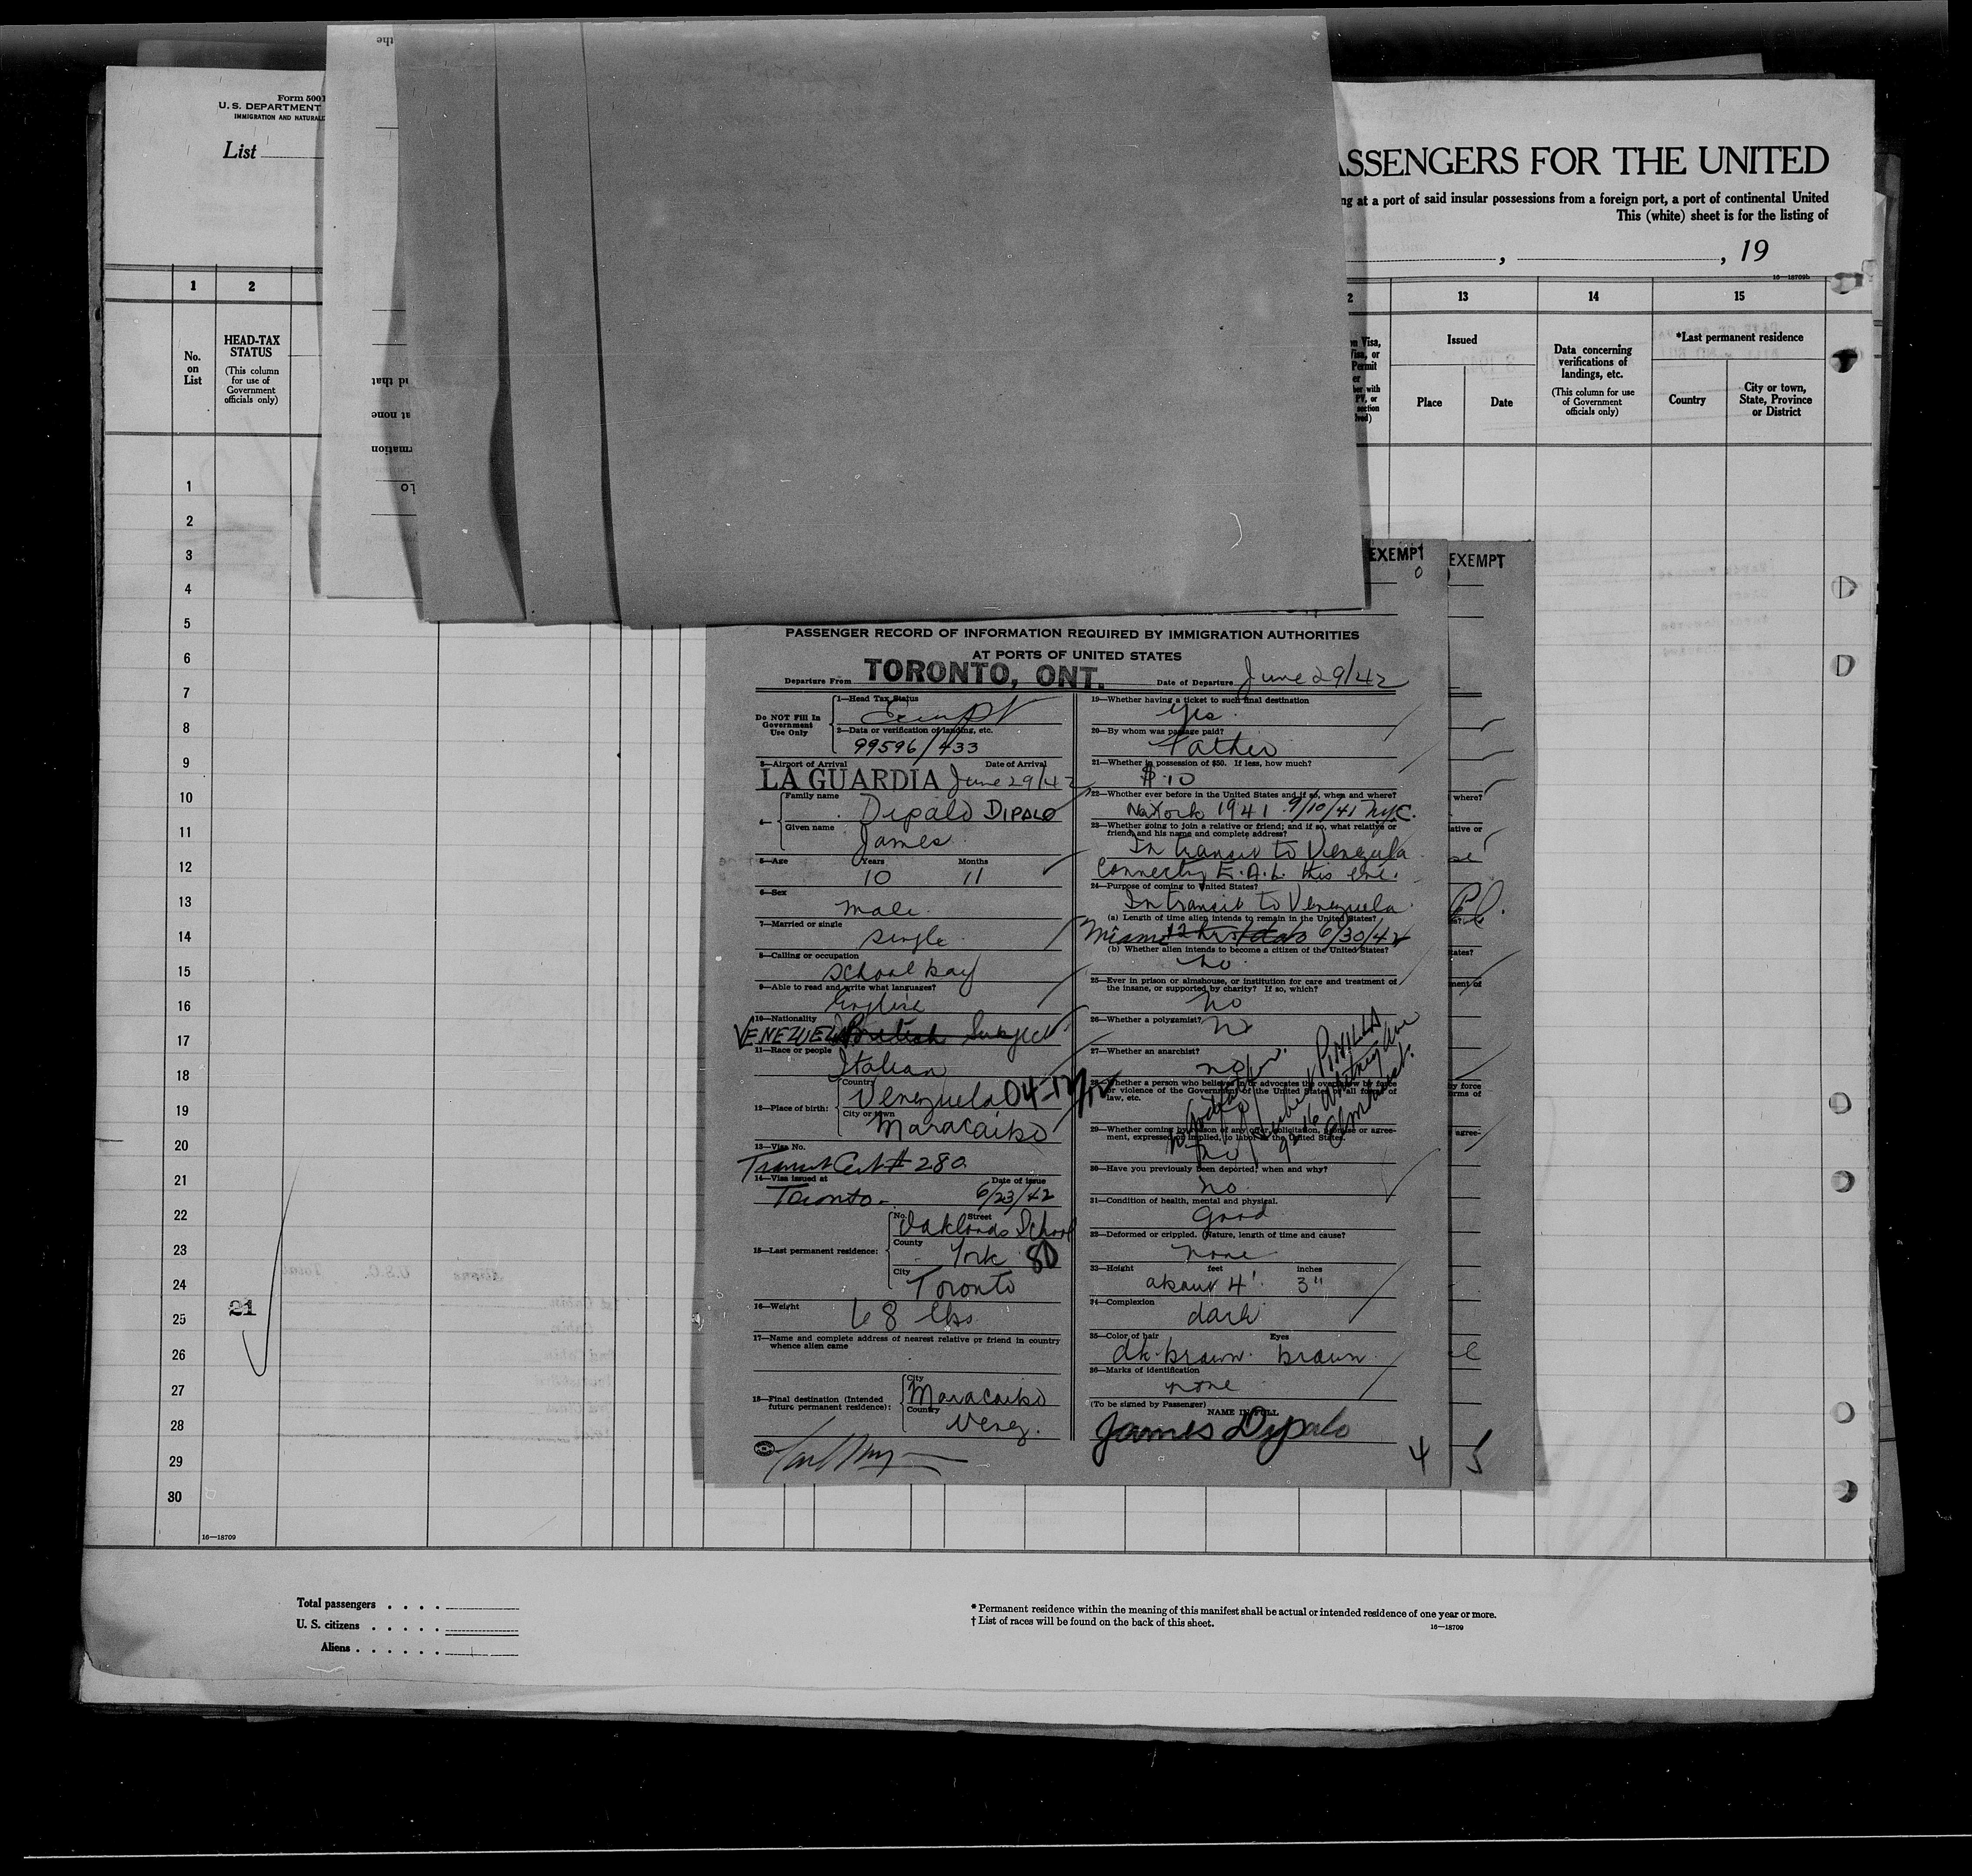 Form 500
U. S. DEPARTMENT
IMMIGRATION AND NATURALI
List
the
nd that
at none
rmation
Lo
ASSENGERS FOR THE UNITED
ng at a port of said insular possessions from a foreign port, a port of continental United
This (white) sheet is for the listing of
, , 19
16—18709b
1 2
No.
on
List
HEAD-TAX
STATUS
(This column
for use of
Government
officials only)
2 13 14 15
Issued
Place Date
Data concerning
verifications of
landings, etc.
(This column for use
of Government
officials only)
*Last permanent residence
Country
City or town,
State, Province
or District
1
2
3
4
5
6
7
8
9
10
11
12
13
14
15
16
17
18
19
20
21
22
23
24
25
26
27
28
29
30
21
16—18709
EXEMPT
EXEMPT
PASSENGER RECORD OF INFORMATION REQUIRED BY IMMIGRATION AUTHORITIES
AT PORTS OF UNITED STATES
Departure From TORONTO, ONT. Date of Departure June 29/42
Do NOT Fill In
Government
Use Only
1—Head Tax Status
Exempt
2—Data or verification of landing, etc.
99596/433
3—Airport of Arrival Date of Arrival
LA GUARDIA June 29/42
4—
Family name
Dipalo DIPALO
Given name
James
5—Age Years Months
10 11
6—Sex
male
7—Married or single
single
8—Calling or occupation
school bay
9—Able to read and write what languages?
English
10—Nationality
VENEZUELA British Subject
11—Race or people
Italian
12—Place of birth:
Country
Venezuela
City or town
Maracaibo
13—Visa No.
Transit Cert # 280
14—Visa issued at Date of issue
Toronto - 6/23/42
15—Last permanent residence:
No. Street
Oaklands School
County
York 80
City
Toronto
16—Weight
68 lbs
17—Name and complete address of nearest relative or friend in country
whence alien came
18—Final destination (Intended
future permanent residence):
City
Maracaibo
Country
Venez.
19—Whether having a ticket to such final destination
yes
20—By whom was passage paid?
Father
21—Whether in possession of $50. If less, how much?
$10
22—Whether ever before in the United States and if so, when and where?
New York 1941 9/10/41 NYC.
23—Whether going to join a relative or friend; and if so, what relative or
friend, and his name and complete address?
In transit to Venezula
Connecting E.A.L. this eve.
24—Purpose of coming to United States?
In transit to Venezuela
(a) Length of time alien intends to remain in the United States?
Miami 12 hrs 6/30/42
(b) Whether alien intends to become a citizen of the United States?
no
25—Ever in prison or almshouse, or institution for care and treatment of
the insane, or supported by charity? If so, which?
no
26—Whether a polygamist?
no
27—Whether an anarchist?
no
28—Whether a person who believes in or advocates the overthrow by force
or violence of the Government of the United States or all forms of
law, etc.
no
29—Whether coming by reason of any offer, solicitation, promise or agree-
ment, expressed or implied, to labor in the United States.
no
30—Have you previously been deported; when and why?
no
31—Condition of health, mental and physical.
good
32—Deformed or crippled. (Nature, length of time and cause?
none
33—Height feet inches
about 4' 3"
34—Complexion
dark
35—Color of hair Eyes
dk. brown. brown
36—Marks of identification
none
(To be signed by Passenger)
NAME IN FULL
James Dipalo
4
5
where?
ative or
tates?
ment of
y force
rms of
agree-
Total passengers . . . .
U. S. citizens . . . . .
Aliens . . . . . .
* Permanent residence within the meaning of this manifest shall be actual or intended residence of one year or more.
† List of races will be found on the back of this sheet.
16—18709